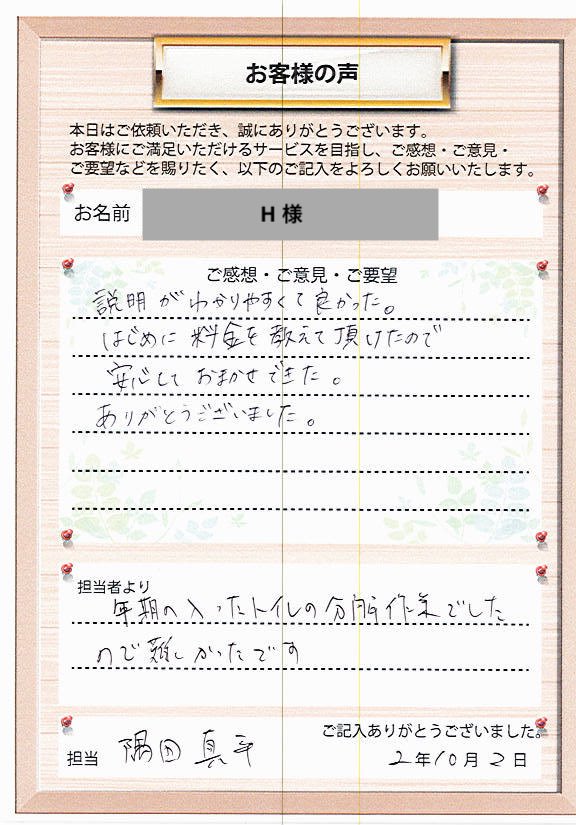 お客様の声
本日はご依頼いただき、誠にありがとうございます。
お客様にご満足いただけるサービスを目指し、ご感想・ご意見・
ご要望などを賜りたく、以下のご記入をよろしくお願いいたします。
お名前 H 様
ご感想・ご意見・ご要望
説明がわかりやすくて良かった。
はじめに料金を教えて頂けたので
安心しておまかせできた。
ありがとうございました。
担当者より
年期の入ったトイレの分解作業でした
ので難しかったです
ご記入ありがとうございました。
担当 隅田 真平 2年10月2日